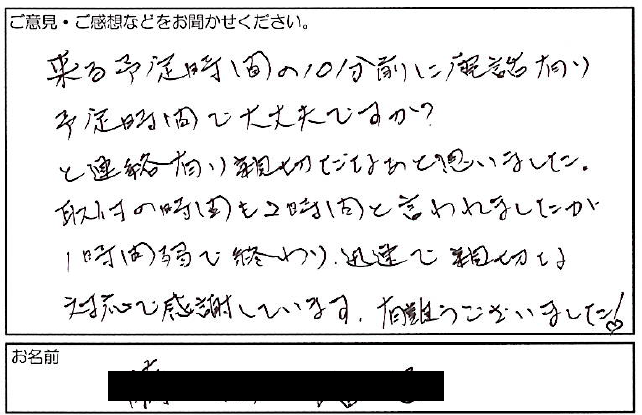 ご意見・ご感想などをお聞かせください。
来る予定時間の10分前に電話有り
予定時間で大丈夫ですか?
と連絡有り親切だなぁと思いました。
取付の時間も2時間と言われましたが
1時間弱で終わり、迅速で親切な
対応で感謝しています。有難うございました!♡
お名前